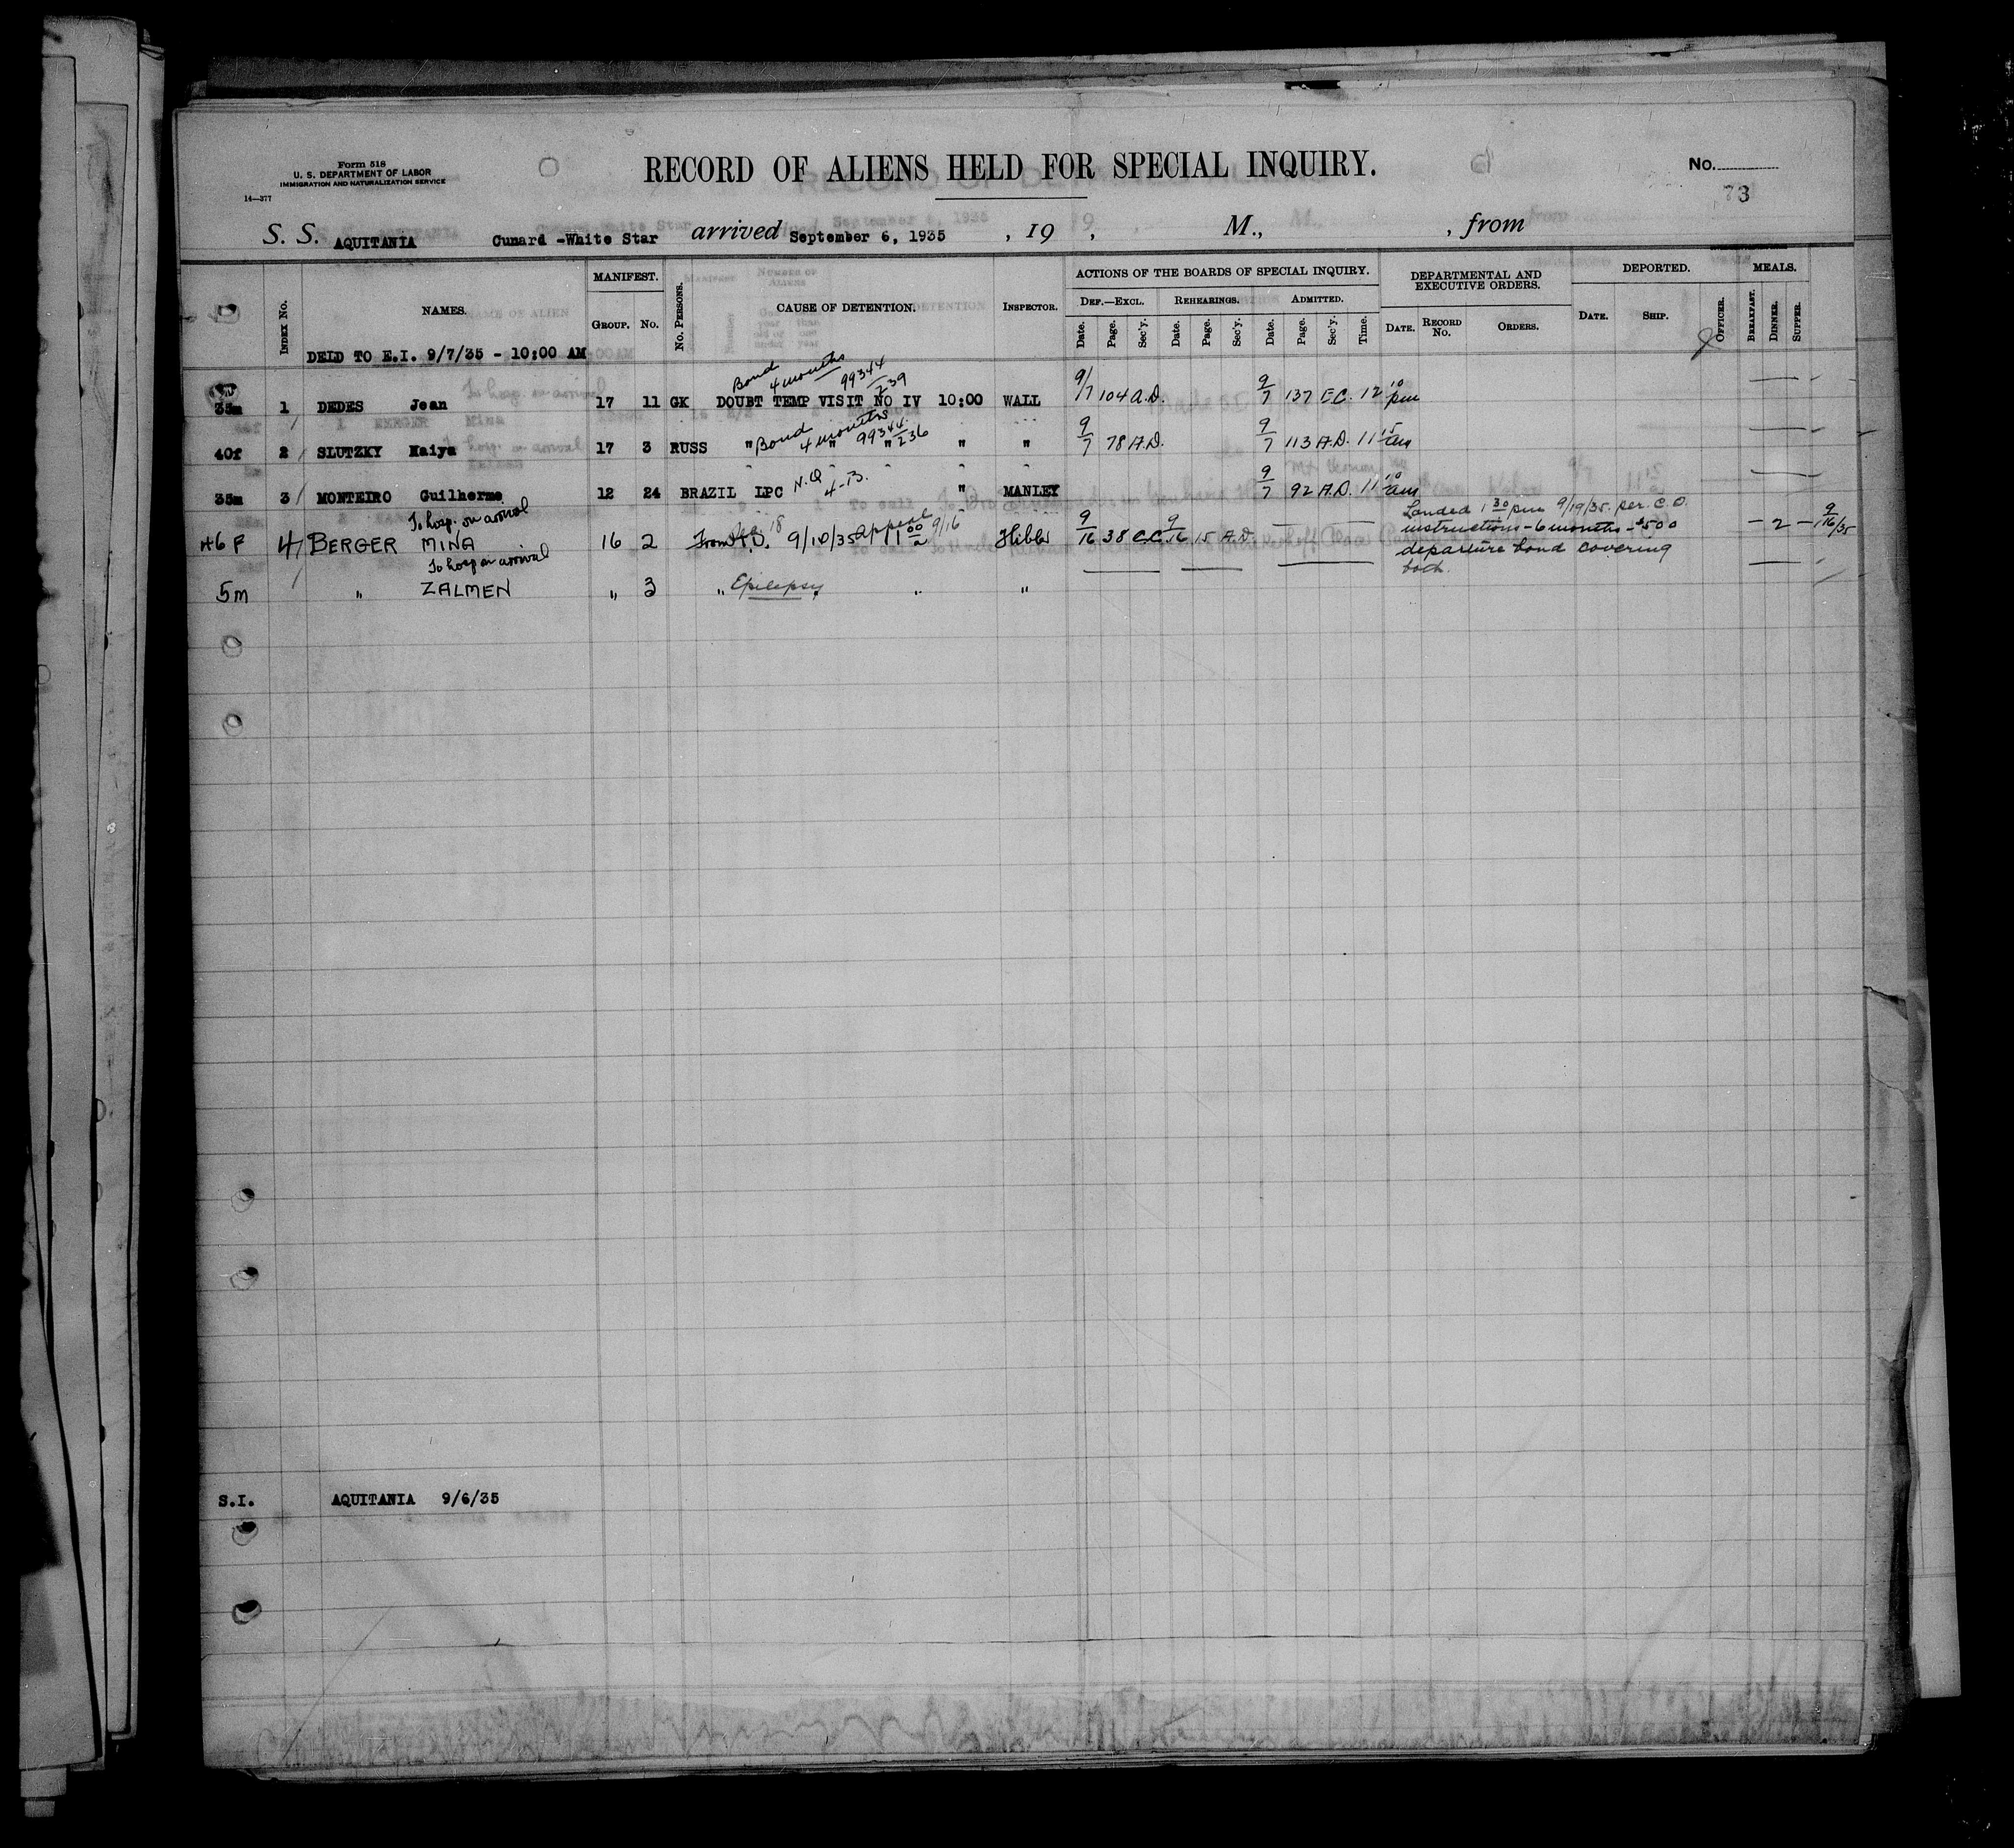 Form 518
U. S. DEPARTMENT OF LABOR
IMMIGRATION AND NATURALIZATION SERVICE
14—377
RECORD OF ALIENS HELD FOR SPECIAL INQUIRY.
No.
73
S. S. AQUITANIA Cunard -White Star arrived September 6, 1935 , 19 , M., , from
INDEX No. NAMES. MANIFEST. GROUP. No. No. PERSONS. CAUSE OF DETENTION. INSPECTOR. ACTIONS OF THE BOARDS OF SPECIAL INQUIRY. DEPARTMENTAL AND EXECUTIVE ORDERS. DEPORTED. MEALS.
DEF.—EXCL. REHEARINGS. ADMITTED.
Date. Page. Sec'y. Date. Page. Sec'y. Date. Page. Sec'y. Time. DATE. RECORD No. ORDERS. DATE. SHIP. OFFICER. BREAKFAST. DINNER. SUPPER.
DELD TO E.I. 9/7/35 - 10:00 AM
Bond 4 months 99344/239
35m 1 DEDES Jean 17 11 GK DOUBT TEMP VISIT NO IV 10:00 WALL 9/7 104 A.D. 9/7 137 E.C. 12 10 pm
Bond 4 months 99344/236
40f 2 SLUTZKY Maiya 17 3 RUSS " " " " " 9/7 78 A.D. 9/7 113 A.D. 11 15 am
N.Q 4-B.
35m 3 MONTEIRO Guilherme 12 24 BRAZIL LPC " MANLEY 9/7 92 A.D. 11 10 am
To hosp. on arrival
46 F 4 BERGER MINA 16 2 From H.D. 9/10/35 appeal 1 00/2 9/16 Hibler 9/16 38 C.C. 9/16 15 A.D. — 2 — 9/16/35
Landed 1 30 pm 9/19/35. per. C.O.
instructions - 6 months - $500
departure bond covering
both.
To hosp on arrival
5m " ZALMEN " 3 " Epilepsy " "
S.I. AQUITANIA 9/6/35